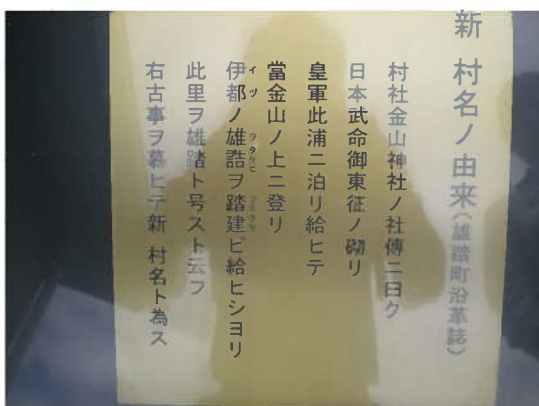 新 村名ノ由来(雄踏町沿革誌)
村社金山神社ノ社傳ニ曰ク
日本武命御東征ノ砌リ
皇軍此浦ニ泊リ給ヒテ
當金山ノ上ニ登リ
伊都ノ雄誥ヲ踏建ビ給ヒシヨリ
イツ ヲタケビ
此里ヲ雄踏ト号スト云フ
右古事ヲ慕ヒテ新 村名ト為ス